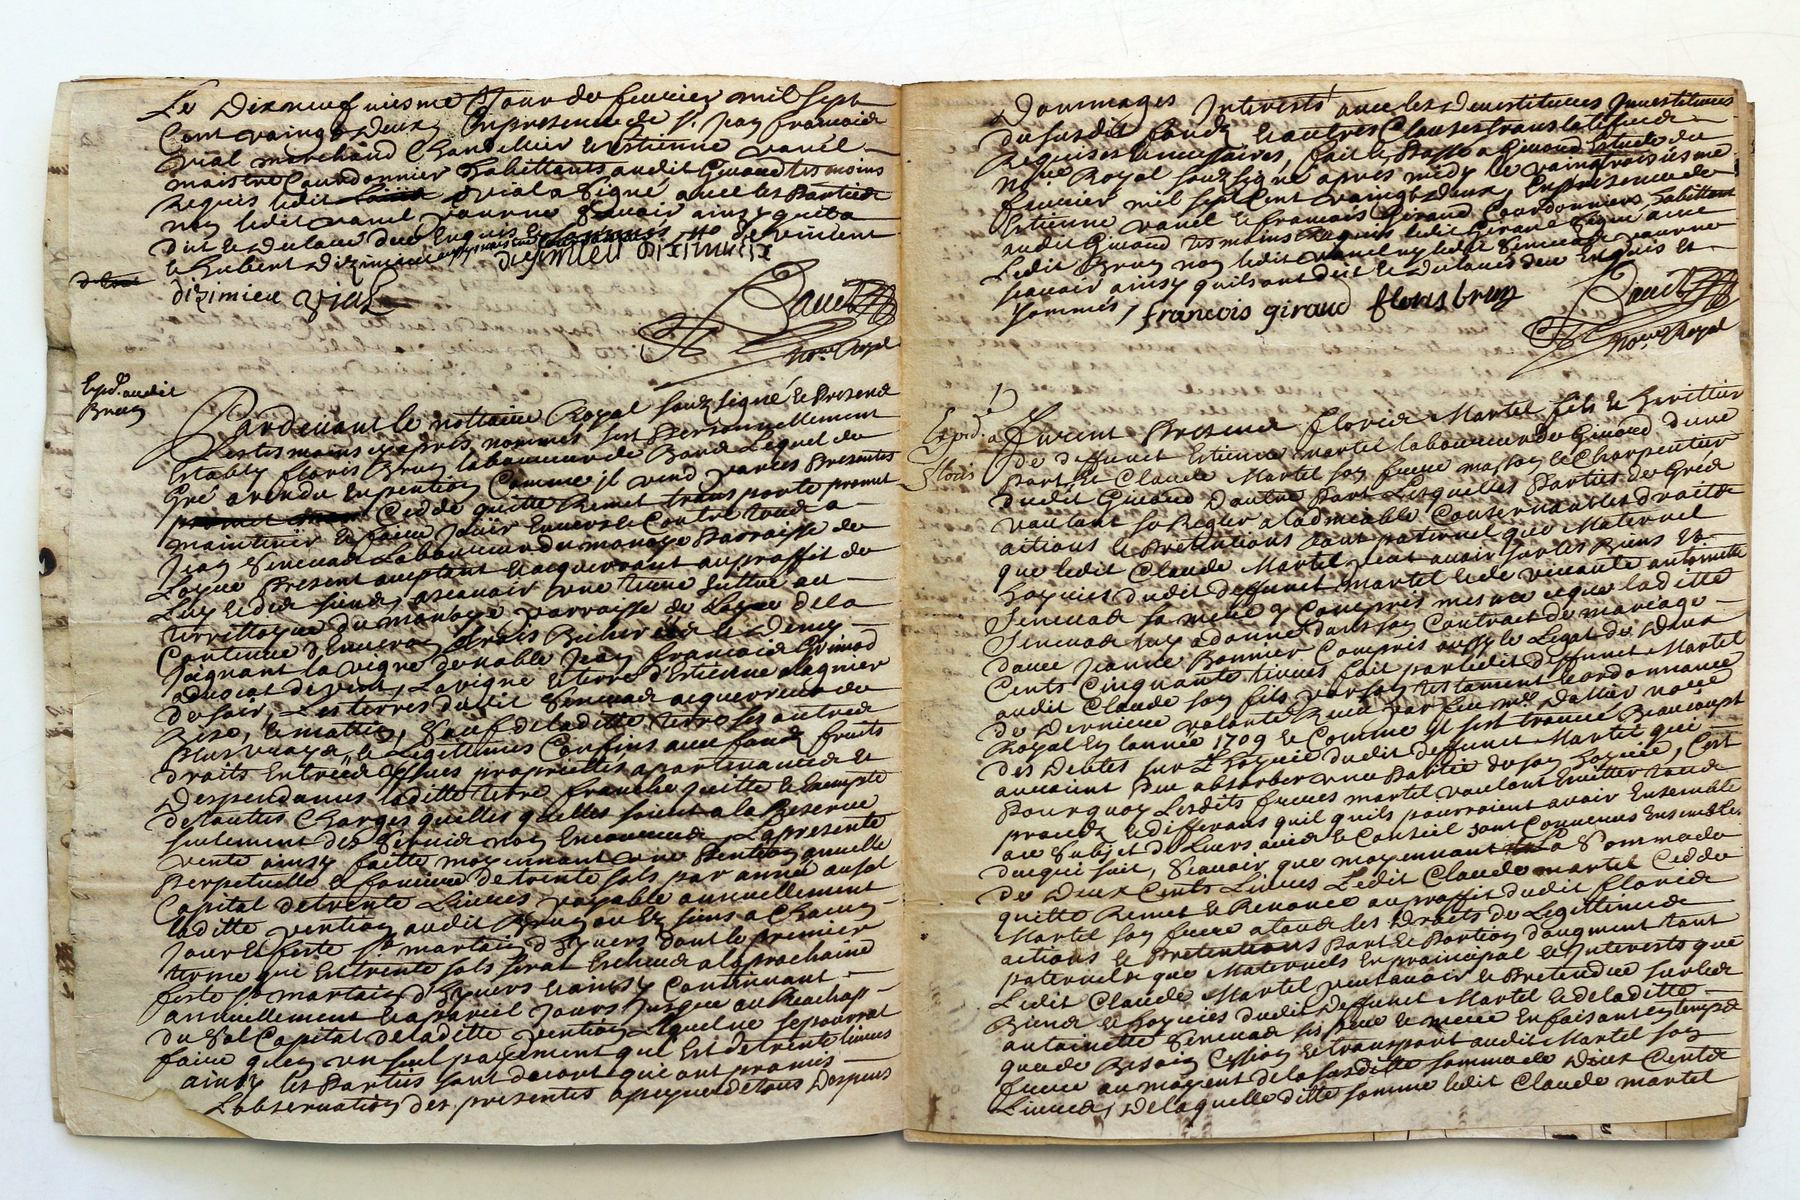 Le Dixneufviesme Jour de fevrier mil sept
Cent vaingt deux, En presence de sr. Jean francois
Vial marchand Chandellier & Estienne vanel
maistre Courdonnier habittants audit Givord tesmoins
Requis ledit Vial a signé avec les Parties
non ledit vanel pour ne scavoir ainsy quil a
dit & declaré deu Enquis & sommés
& hubert dizimieu dizimieu dizimieux
dizimieu vial
no.re Royal
Exped. audit
Brun
Pardevant le nottaire Royal soubzsigné & Presend
Les tesmoins cyaprès nommés fut Personnellement
Estably floris Brun laboureur de Lequel de
Gré a vendu En pention Comme jl vend par ces Presentes
Cedde quitte Remet transporte promet
maintenir & faire Jouir Envers & Contre tous a
Jean Senevas Laboureur du monage Parroisse de
Present acceptant & acquereant au proffit de
Luy & des siens, ascavoir une terre scittue au
territtoyre du monage parroisse de de la
Contenue d'Environ trois Bicherées & Demy
Joignant la vigne de noble Jean francois Grimod
advocat de vent, La vigne & terre d'Estienne
de soir, Les terres dudit Senevas acquereur de
Bize, & mattin, Sauf de laditte terre ses autres
Plus vrays, & Legittimes Confins avec fonds fruits
droits Entrées issues proprietés apartenances &
Despendances laditte terre franche quitte & Exempte
de touttes Charges quelles quelles soient a la Reserve
seulement des Servis non Encourus, La presente
vente ainsy faitte moyennant une Pention annuelle
Perpetuelle & fonciere de trente sols par année au sol
Capital de trente Livres payable annuellement
laditte pention audit Brun ou Es siens a Chacun
Jour & feste st. martin d'hyvers dont le premier
terme qui Est trente sols serat Escheu a la prochaine
feste st. martin d'hyvers & ainsy Continuant
annuellement & a pareil Jours Jusque au Reachapt
du Sol Capital de laditte pention Lequel ne se pourrat
faire quen un seul payement qui Est de trente livres
ainsy les Parties sont d'accort qui ont promis
L'observation des presentes a peyne de tous Despens
Dommages Interests avec les Devestitures Investitures
du susdit fonds & autres Clauses translatifves
Requises & necessaires, fait & Passé a Givord Estude du
no.re Royal soubzsigné apres midy le vaingtroisiesme
fevrier mil sept Cent vaingt deux, En presence de
Estienne vanel & francois Giraud Courdonniers habittant
audit Givord tesmoins Requis ledit Giraud signé avec
Ledit Brun non ledit vanel ny ledit Senevas pour ne
scavoir ainsy quils ont dit & declaré deu Enquis &
sommés, francois giraud floris brun
no.re Royal
Exped. a
floris
Furent Presend floris Martel fils & heritier
de deffunct Estienne Martel laboureur de Givord d'une
Part, Et Claude Martel son frere masson & Charpentier
dudit Givord d'autre Part Lesquelles Parties de Gré
voullant se Regler a l'admiable Consernant les droits
actions & Pretentions tant paternel que Maternel
que ledit Claude Martel peut avoir sur les Biens &
hoyries dudit deffunct Martel & de vivante antoinette
Senevas sa mere y Compris mesme ce que laditte
Senevas luy a donné dans son Contract de mariage
d'avec Jeanne Bonnier Compris aussy le Legat de Deux
Cents Cinquante livres fait par ledit deffunct Martel
audit Claude son fils par son testament & ordonnance
de Derniere volonté Receu par feu me. Dallier no.re
Royal En l'année 1709 & Comme Il sest trouvé Beaucoupt
des Debtes sur L'hoyrie dudit deffunct Martel qui
auroint Peu absorber une Partie de son hoyrie, C'est
Pourquoy Lesdits freres martel voullant Esvitter tous
procés & differans quil quils pourroient avoir Ensemble
au Subjet de Leurs avis & Conseil sont Convenus Ensemble
de ce qui suit, Scavoir que moyennant La Somme de
de Deux Cents Livres Ledit Claude martel Cedde
quitte Remet & Renonce au proffit dudit floris
Martel son frere a tous les Droits de Legittimes
actions & Pretentions Part & Portion d'augment tant
paternels que Maternels En principal & Interests que
Ledit Claude Martel peut avoir & Pretendre sur les
Biens & hoyries dudit deffunct Martel & de laditte
antoinette Senevas ses pere & mere En faisant En temps
que de Besoin Cession & transport audit Martel son
frere au moyent de la susditte somme de Deux Cents
Livres, De laquelle ditte somme ledit Claude martel